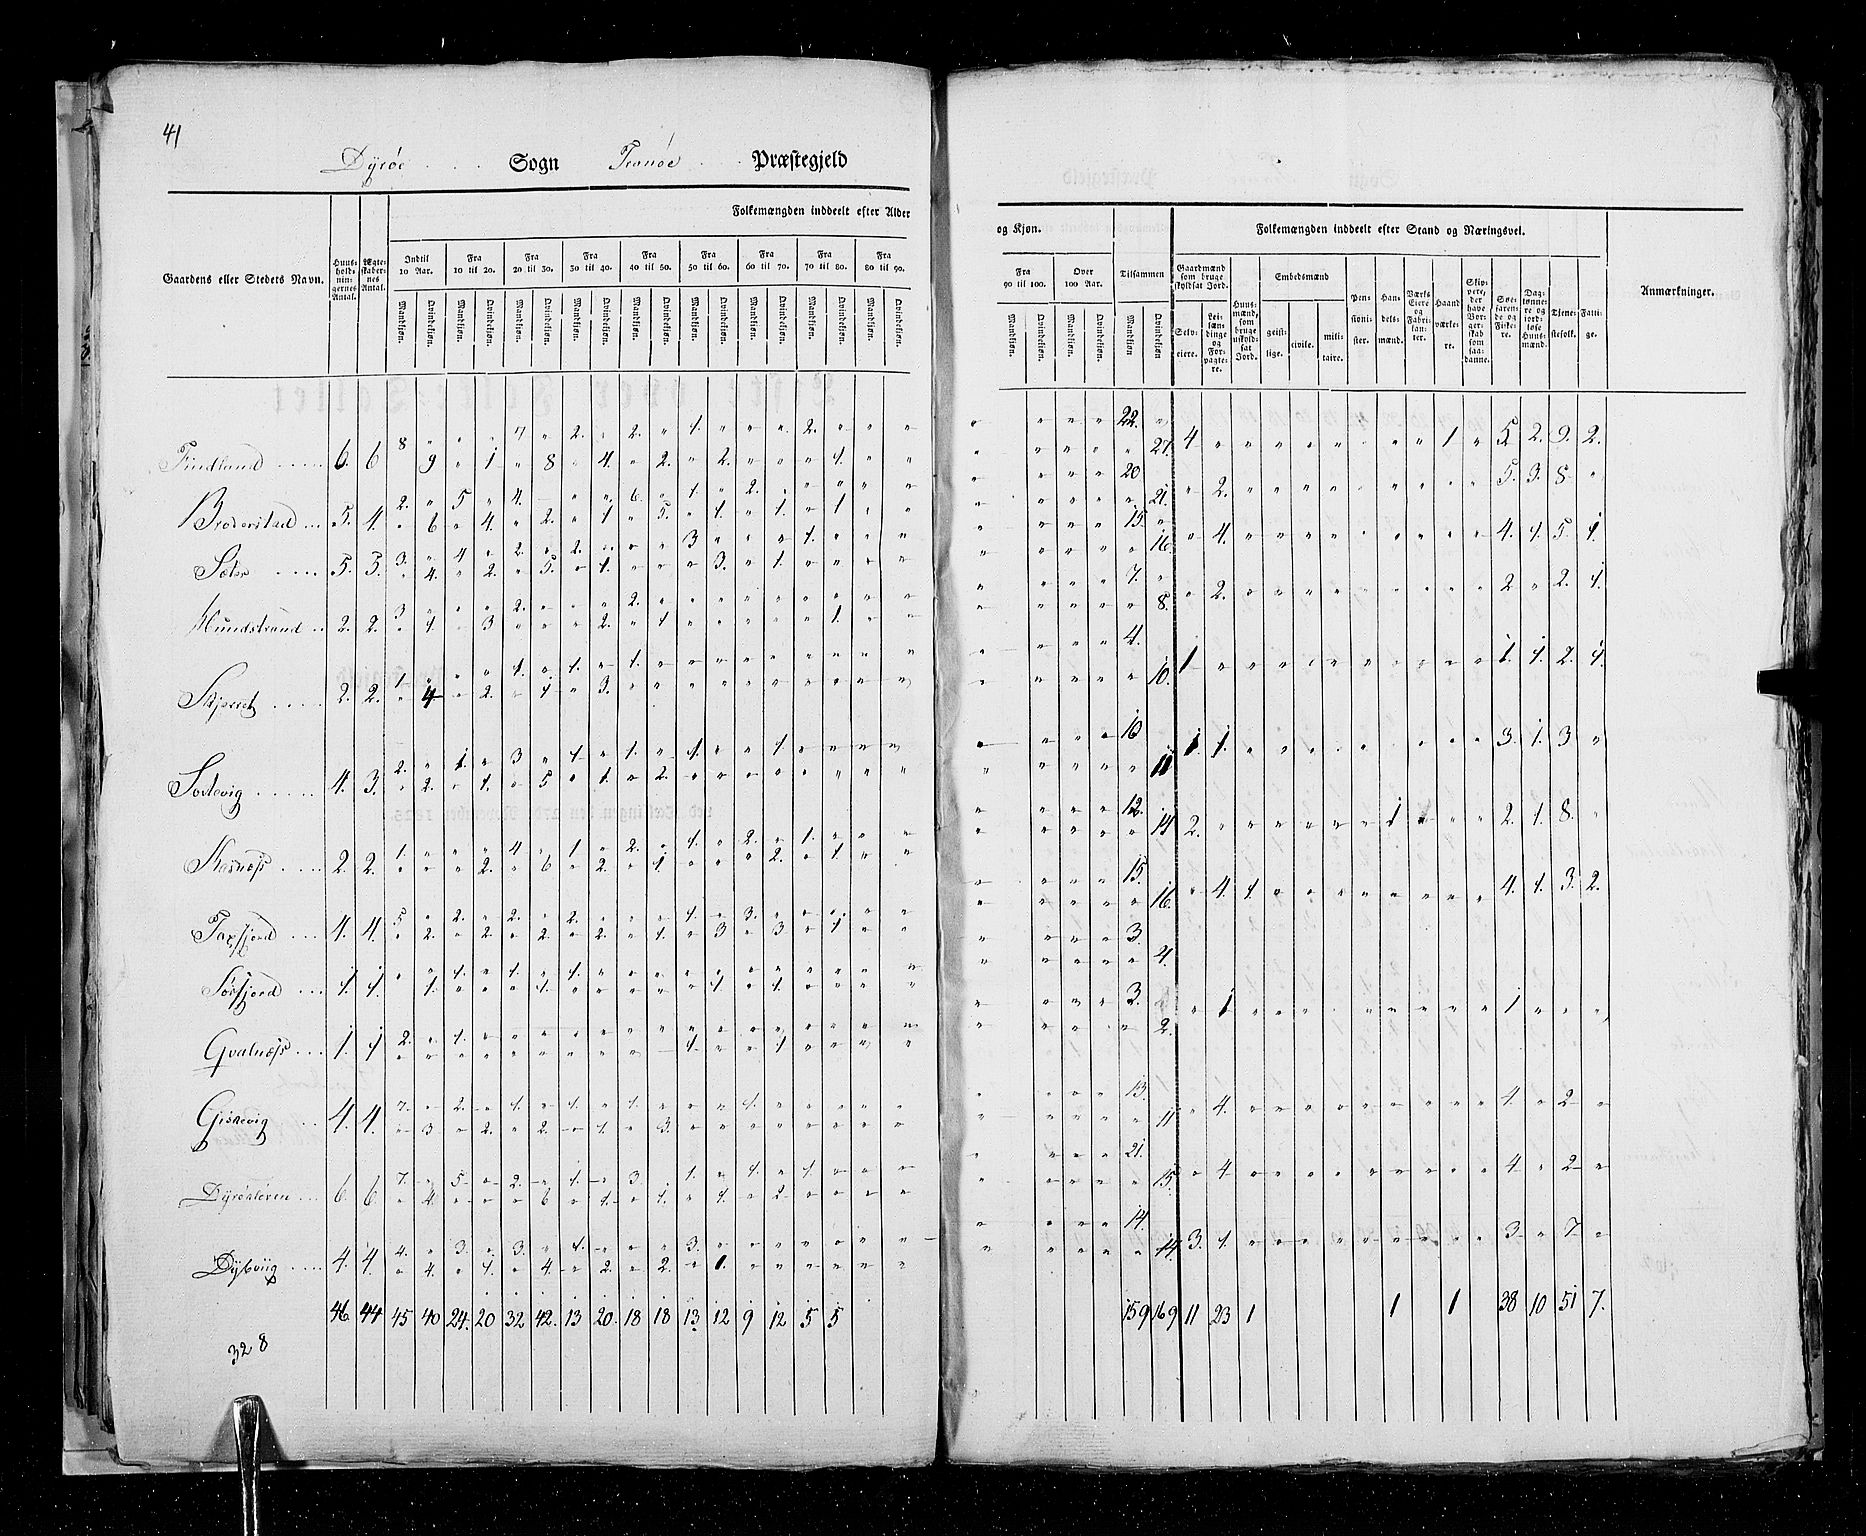 41
Dyrøe Sogn Tranøe Præstegjeld
Gaardens eller Stedets Navn.
Huusholdningernes Antal.
Ægteskabernes Antal.
Folkemængden inddeelt efter Alder
og Kjøn.
Indtil 10 Aar. Fra 10 til 20. Fra 20 til 30. Fra 30 til 40. Fra 40 til 50. Fra 50 til 60. Fra 60 til 70. Fra 70 til 80. Fra 80 til 90.
Fra 90 til 100. Over 100 Aar. Tilsammen
Mandkjøn. Qvindekjøn. Mandkjøn. Qvindekjøn. Mandkjøn. Qvindekjøn. Mandkjøn. Qvindekjøn. Mandkjøn. Qvindekjøn. Mandkjøn. Qvindekjøn. Mandkjøn. Qvindekjøn. Mandkjøn. Qvindekjøn. Mandkjøn. Qvindekjøn.
Mandkjøn. Qvindekjøn. Mandkjøn. Qvindekjøn. Mandkjøn Qvindekjøn
Folkemængden inddeelt efter Stand og Næringsvei.
Gaardmænd som bruge skyldsat Jord.
Selveiere. Leilændinge og Forpagtere.
Huusmænd, som bruge uskyldsat Jord.
Embedsmænd
geistlige. civile. militaire.
Pensionister. Handelsmænd. Værks Eiere og Fabrikanter. Haandværkere.
Skippere, der have Borgerskab som saadanne.
Søefarende og Fiskere.
Daglønnere og jordløse Huusmænd.
Tjenestefolk. Fattige.
Anmærkninger.
Findland 6. 6 8 7 2. 2. 1. 2. 22.
9 1 8 4. 2. 2. 1. 27. 4 1 5. 2. 9. 2.
Broderstad 5. 4. 2. 5 4. 6. 1. 2. 20
6 4. 2. 1 5. 1. 1. 1 21. 2. 5. 3. 8
Sæter 5. 5. 3. 4 2. 2. 3 1. 15
4. 2. 5. 1. 3. 1. 16. 4. 4. 1. 5. 1.
Mundstrand 2. 2. 3 2. 2. 7.
1. 3 2. 1 1. 8. 2. 2 2. 1.
2. 2. 1. 1. 1. 1. 4.
4 2. 1 3. 10. 1 1. 1. 2. 1.
4. 3. 2. 1. 3 1 1. 1. 1. 10
2. 1. 5 1. 2. 11 1. 1. 3. 1. 3
2. 2. 1. 4. 1 2. 1. 2. 1. 12.
2. 6 2. 1. 2. 1. 14 2. 1 2. 1. 8.
4. 4. 5 2. 2. 2. 1. 3. 15.
2. 2. 2. 2. 1. 3 3 1 16. 4. 1. 4. 1. 3. 2.
Sørfjord 1. 1. 1. 1. 1. 3.
1. 1. 1. 1. 4.
1. 1 2. 1. 3.
1. 1 2. 1 1
4. 4. 7. 2. 1. 1. 1. 1. 13.
3 2. 2. 1. 3. 11 4. 4. 2
6. 6 7. 5 2. 1. 3. 1. 1. 1. 21.
4. 6 1. 1. 1. 2 15. 4 4 2
4. 4. 4. 3. 3. 1. 3. 14.
4. 1. 4. 2. 2. 1. 14. 3. 1. 3 7
46 44 45 40 24. 20 32 42. 13 20. 18 18 13 12 9 12 5 5 159 169 11 23 1 1 1 38 10 51 7.
328